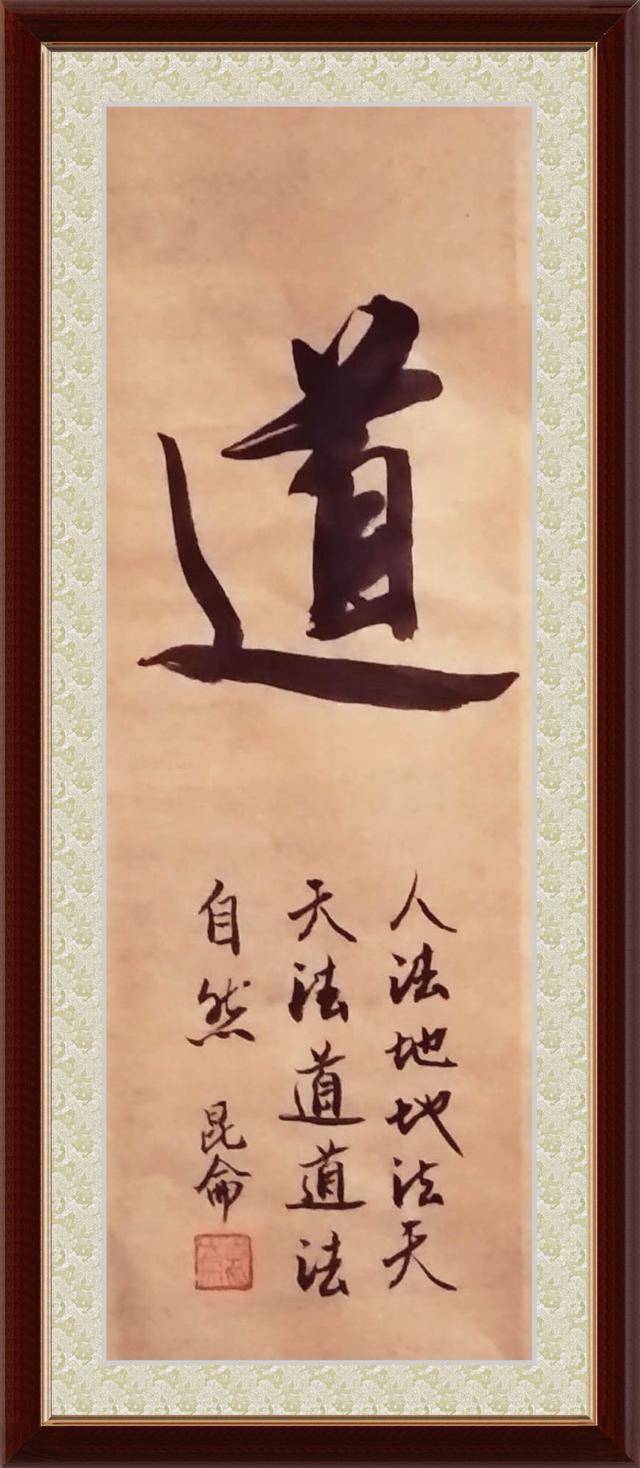 道
人法地地法天
天法道道法
自然 昆侖